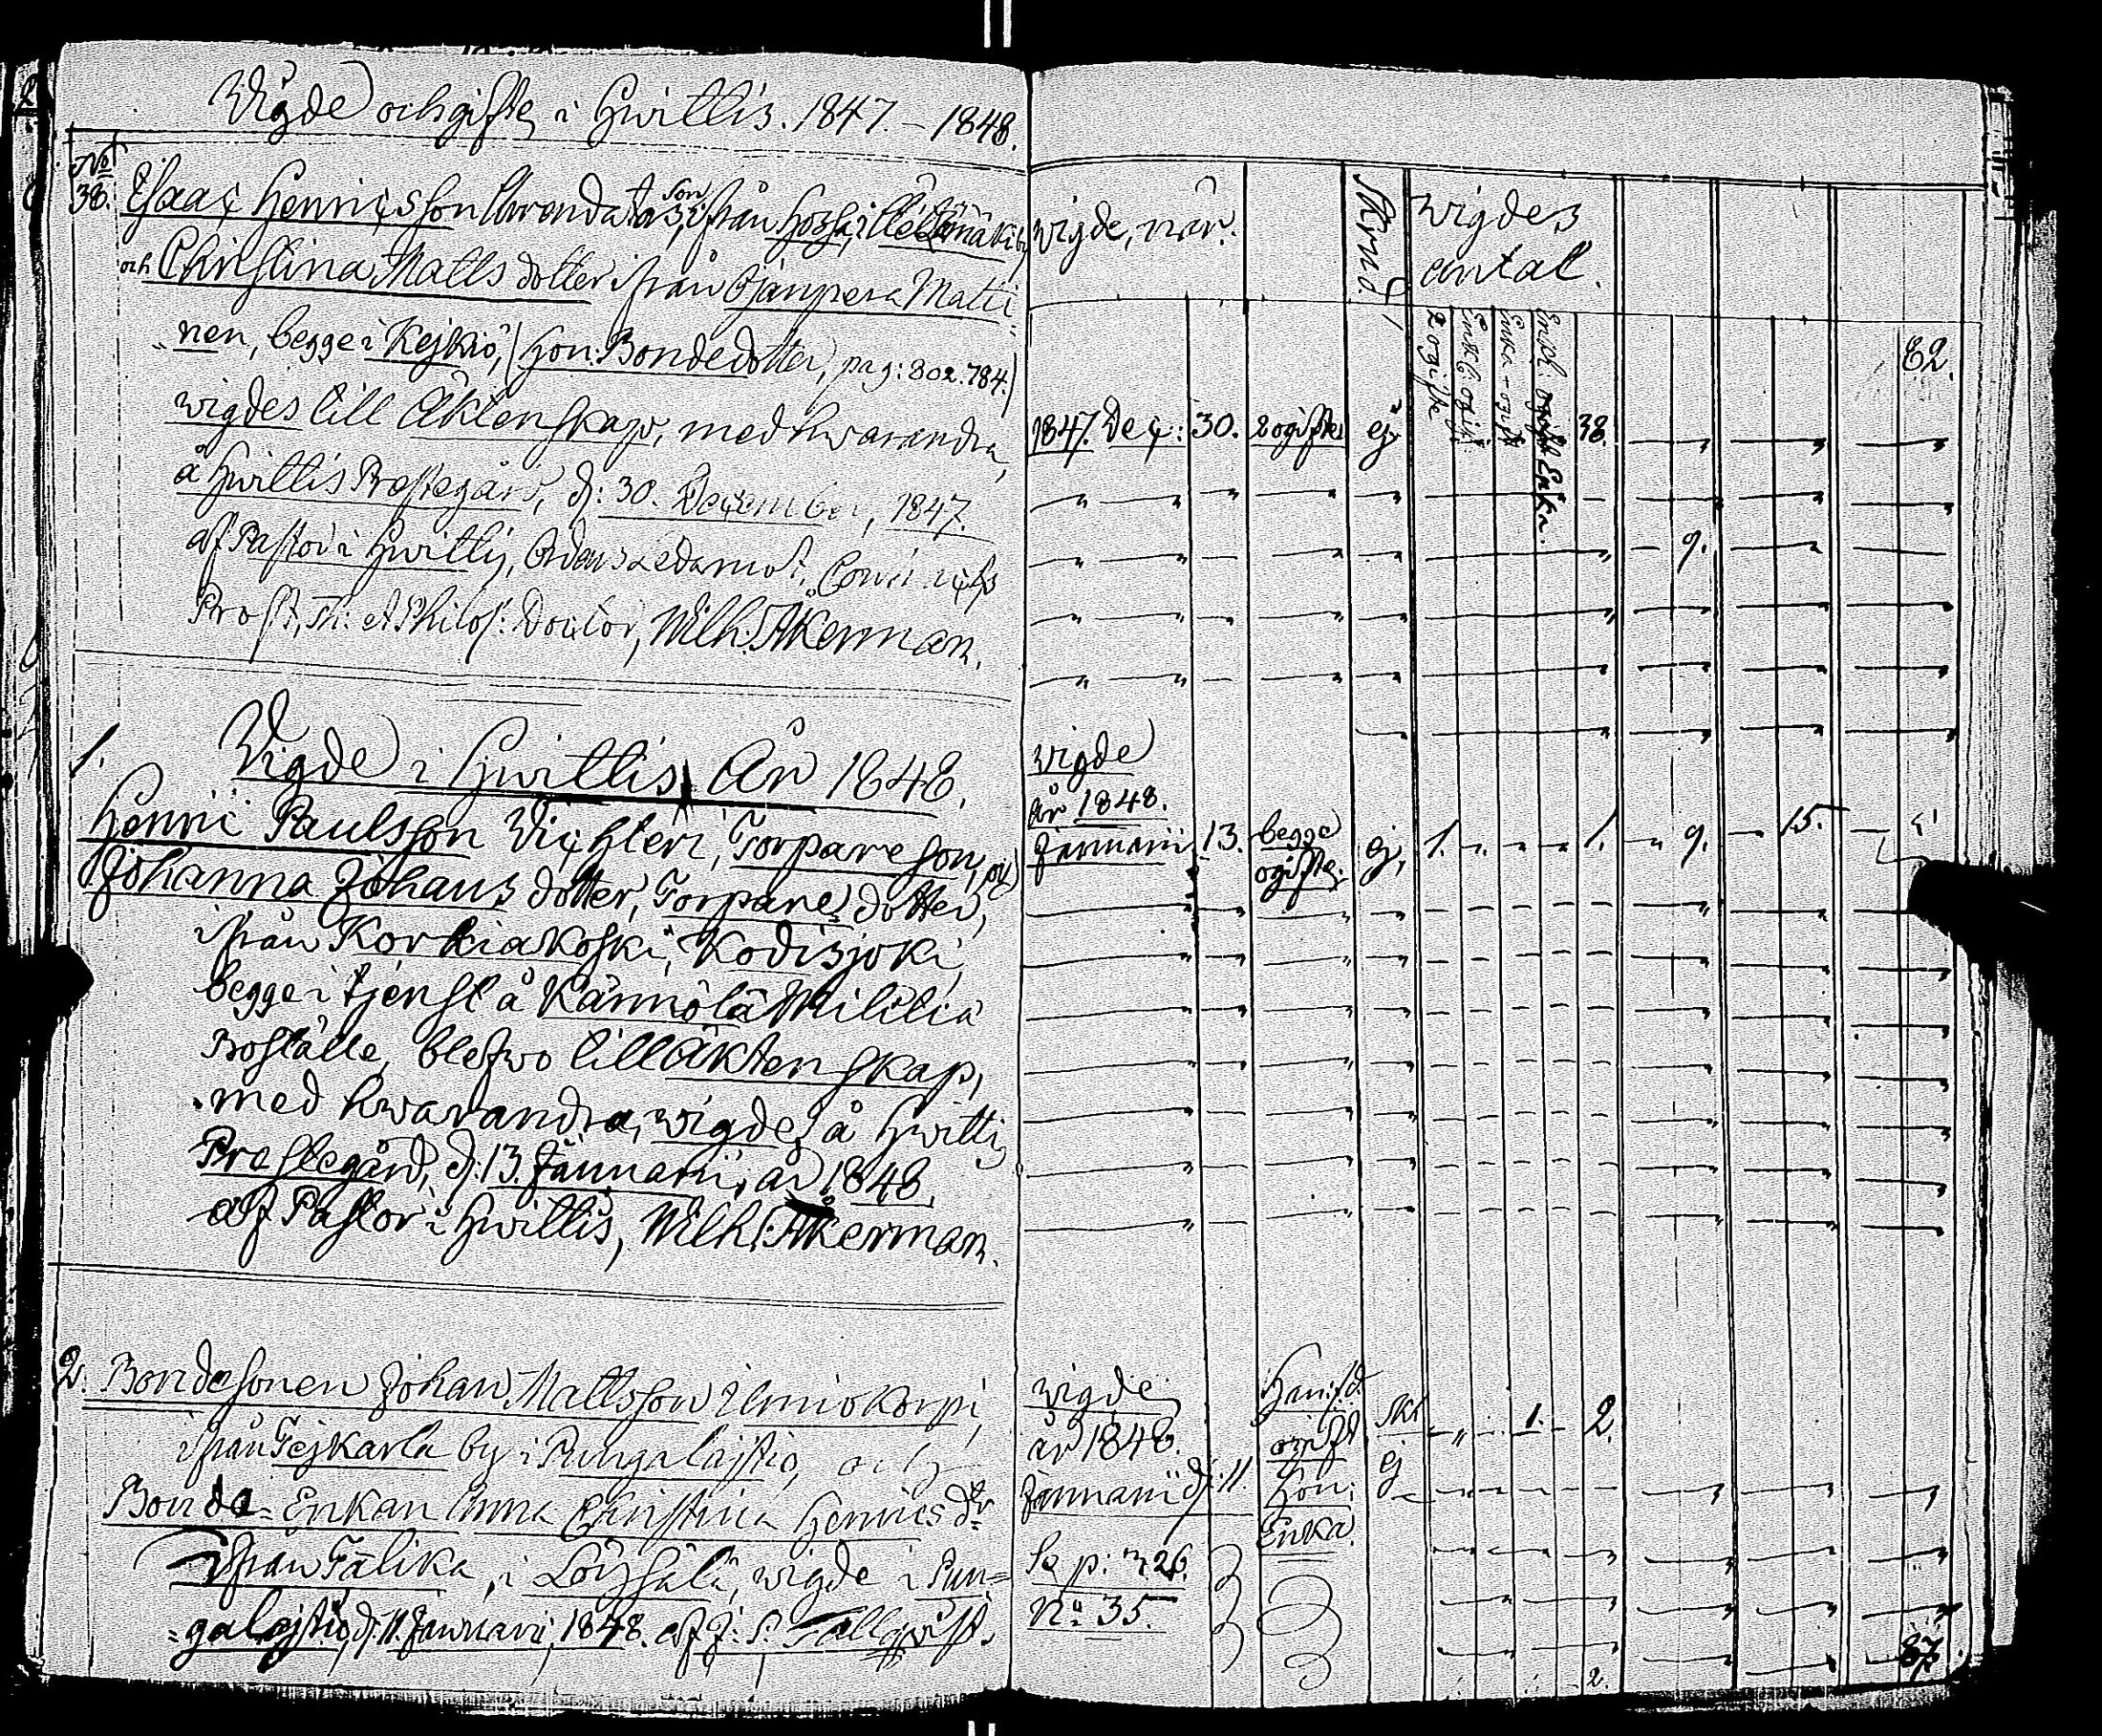 Wigde och gifte i Hwittis. 1847. – 1848.
No
38. Esaaç Henriçsson Arendators son, ifrån Hossa, i
och Christina Matts dotter ifrån Ojanpera Matti-
nen, begge i Kejkiö, (hon: Bondedotter, pag: 802. 784.)
wigdes till Äktenskap, med hwarandra,
å Hwittis Prestegård, d: 30. December, 1847.
af Pastor i Hwittis, Ordens Ledamot,
Prost, Th: et Philos: Doctor, Wilh: Åkerman.
1. Vigde i Hwittis, År 1848.
Henric Paulsson Viçhteri, Torpareson, och
Johanna Johans dotter, Torpare dotter,
ifrån Korkiakoski, Kodisjoki,
begge i tjenst å Kännölä Militiæ
Boställe, blefwo till äktenskap,
med hwarandra, wigde, å Hwittis
Prestegård, d: 13. Januarii, år 1848.
af Pastor i Hwittis, Wilh: Åkerman.
2. Bondesonen Johan Mattsson
ifrån Tejkarla by i Pungalajtio, och
Bonde-Enkan Anna Christina Henrics dr
ifrån Talika, i Löysälä, wigde i Pun-
galajtio, d: 11. Januarii, 1848. af J: S: Tallqvist.
wigde, när.
wigdes
antal.
2 ogifte
82.
1847. Deç: 30. 2 ogifte ej 38.
9.
wigde
år 1848.
Januarii 13. begge ogifte. ej, 1. 1. 9. 15.
wigde
år 1848.
Januarii d: 11.
Se p: 326.
No 35.
ogift
Hon:
Enka.
ej
1. 2.
2.